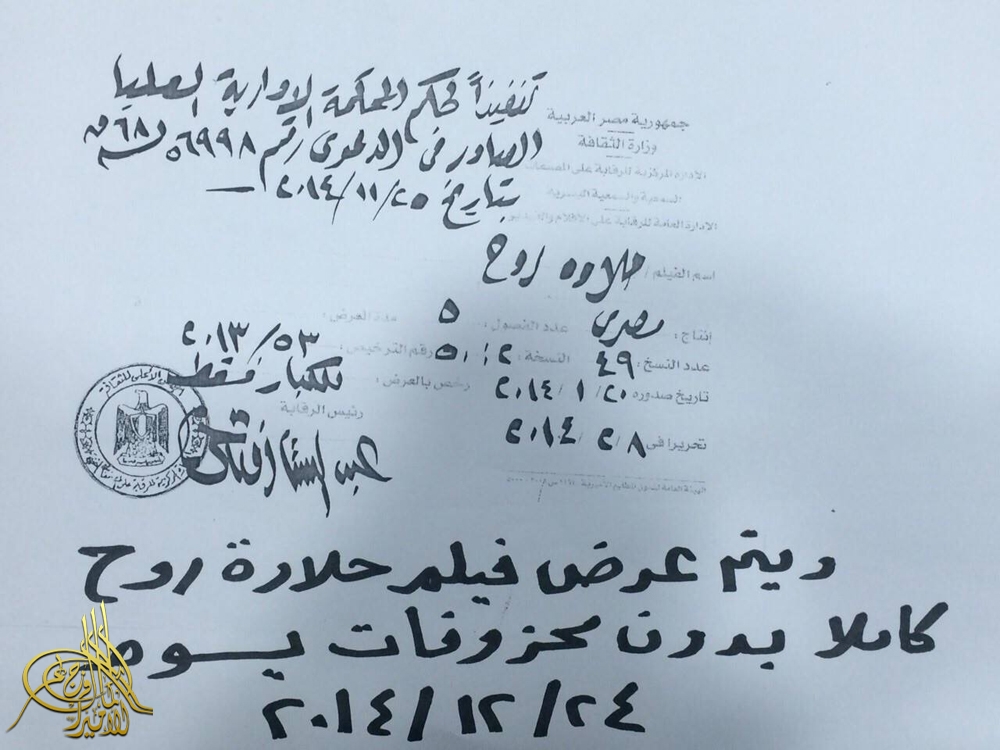 تنفيذاً لحكم المحكمة الإدارية العليا
الصادر فى الدعوى رقم ٥٦٩٩٨ لسنة ٦٨ ق
بتاريخ ٢٠١٤/١١/٢٥
جمهورية مصر العربية
وزارة الثقافة
الادارة المركزية للرقابة على المصنفات
السمعية والسمعية البصرية
الادارة العامة للرقابة على الأفلام
اسم الفيلم / حلاوه روح
إنتاج : مصرى عدد الفصول : ٥ مدة العرض :
عدد النسخ : ٤٩ النسخة : رقم الترخيص : ٥٣/٢٠١٣
تاريخ صدوره ٢٠/١/٢٠١٤ رخص بالعرض : للكبار فقط
تحريرا فى ٨/٢/٢٠١٤
رئيس الرقابة
عبد الستار فتحى
ويتم عرض فيلم حلاوة روح
كاملا بدون محزوفات يوم
٢٠١٤/١٢/٢٤